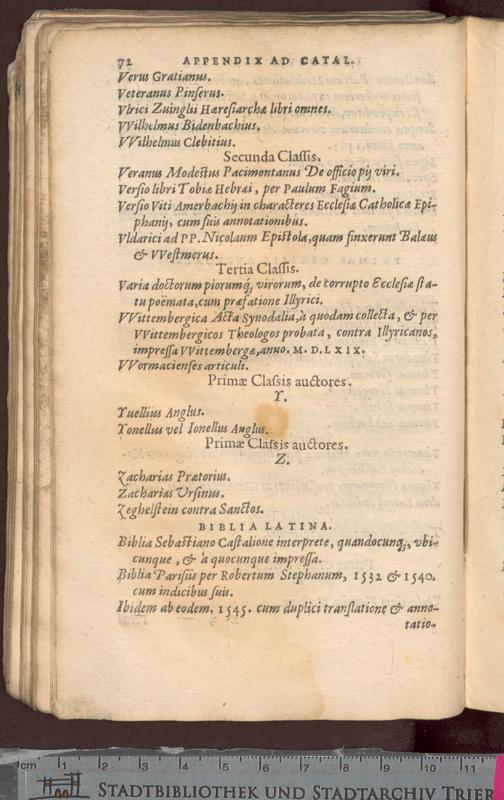 72 APPENDIX AD CATAL.
Verus Gratianus.
Veteranus Pinserus.
Vlrici Zuinglii Hæresiarchæ libri omnes.
VVilhelmus Bidenbachius.
VVilhelmus Clebitius.
Secunda Classis.
Veranus Modestus Pacimontanus De officio pij viri.
Versio libri Tobiæ Hebræi, per Paulum Fagium.
Versio Viti Amerbachij in characteres Ecclesiæ Catholicæ Epi-
phanij, cum suis annotationibus.
Vldarici ad PP. Nicolaum Epistola, quam finxerunt Balæus
& VVestmerus.
Tertia Classis.
Varia doctorum piorumq́, virorum, de corrupto Ecclesiæ sta-
tu poëmata, cum præfatione Illyrici.
VVittembergica Acta Synodalia, à quodam collecta, & per
VVittembergicos Theologos probata, contra Illyricanos,
impressa VVittembergæ, anno. M. D. LXIX.
VVormacienses articuli.
Primæ Classis auctores.
Y.
Yuellius Anglus.
Yonellus vel Ionellus Anglus.
Primæ Classis auctores.
Z.
Zacharias Prætorius.
Zacharias Vrsinus.
Zeghelstein contra Sanctos.
BIBLIA LATINA.
Biblia Sebastiano Castalione interprete, quandocunq́;, vbi-
cunque, & à quocunque impressa.
Biblia Parisiis per Robertum Stephanum, 1532 & 1540.
cum indicibus suis.
Ibidem ab eodem, 1545. cum duplici translatione & anno-
tatio-
cm 1 2 3 4 5 6 7 8 9 10 11
STADTBIBLIOTHEK UND STADTARCHIV TRIER